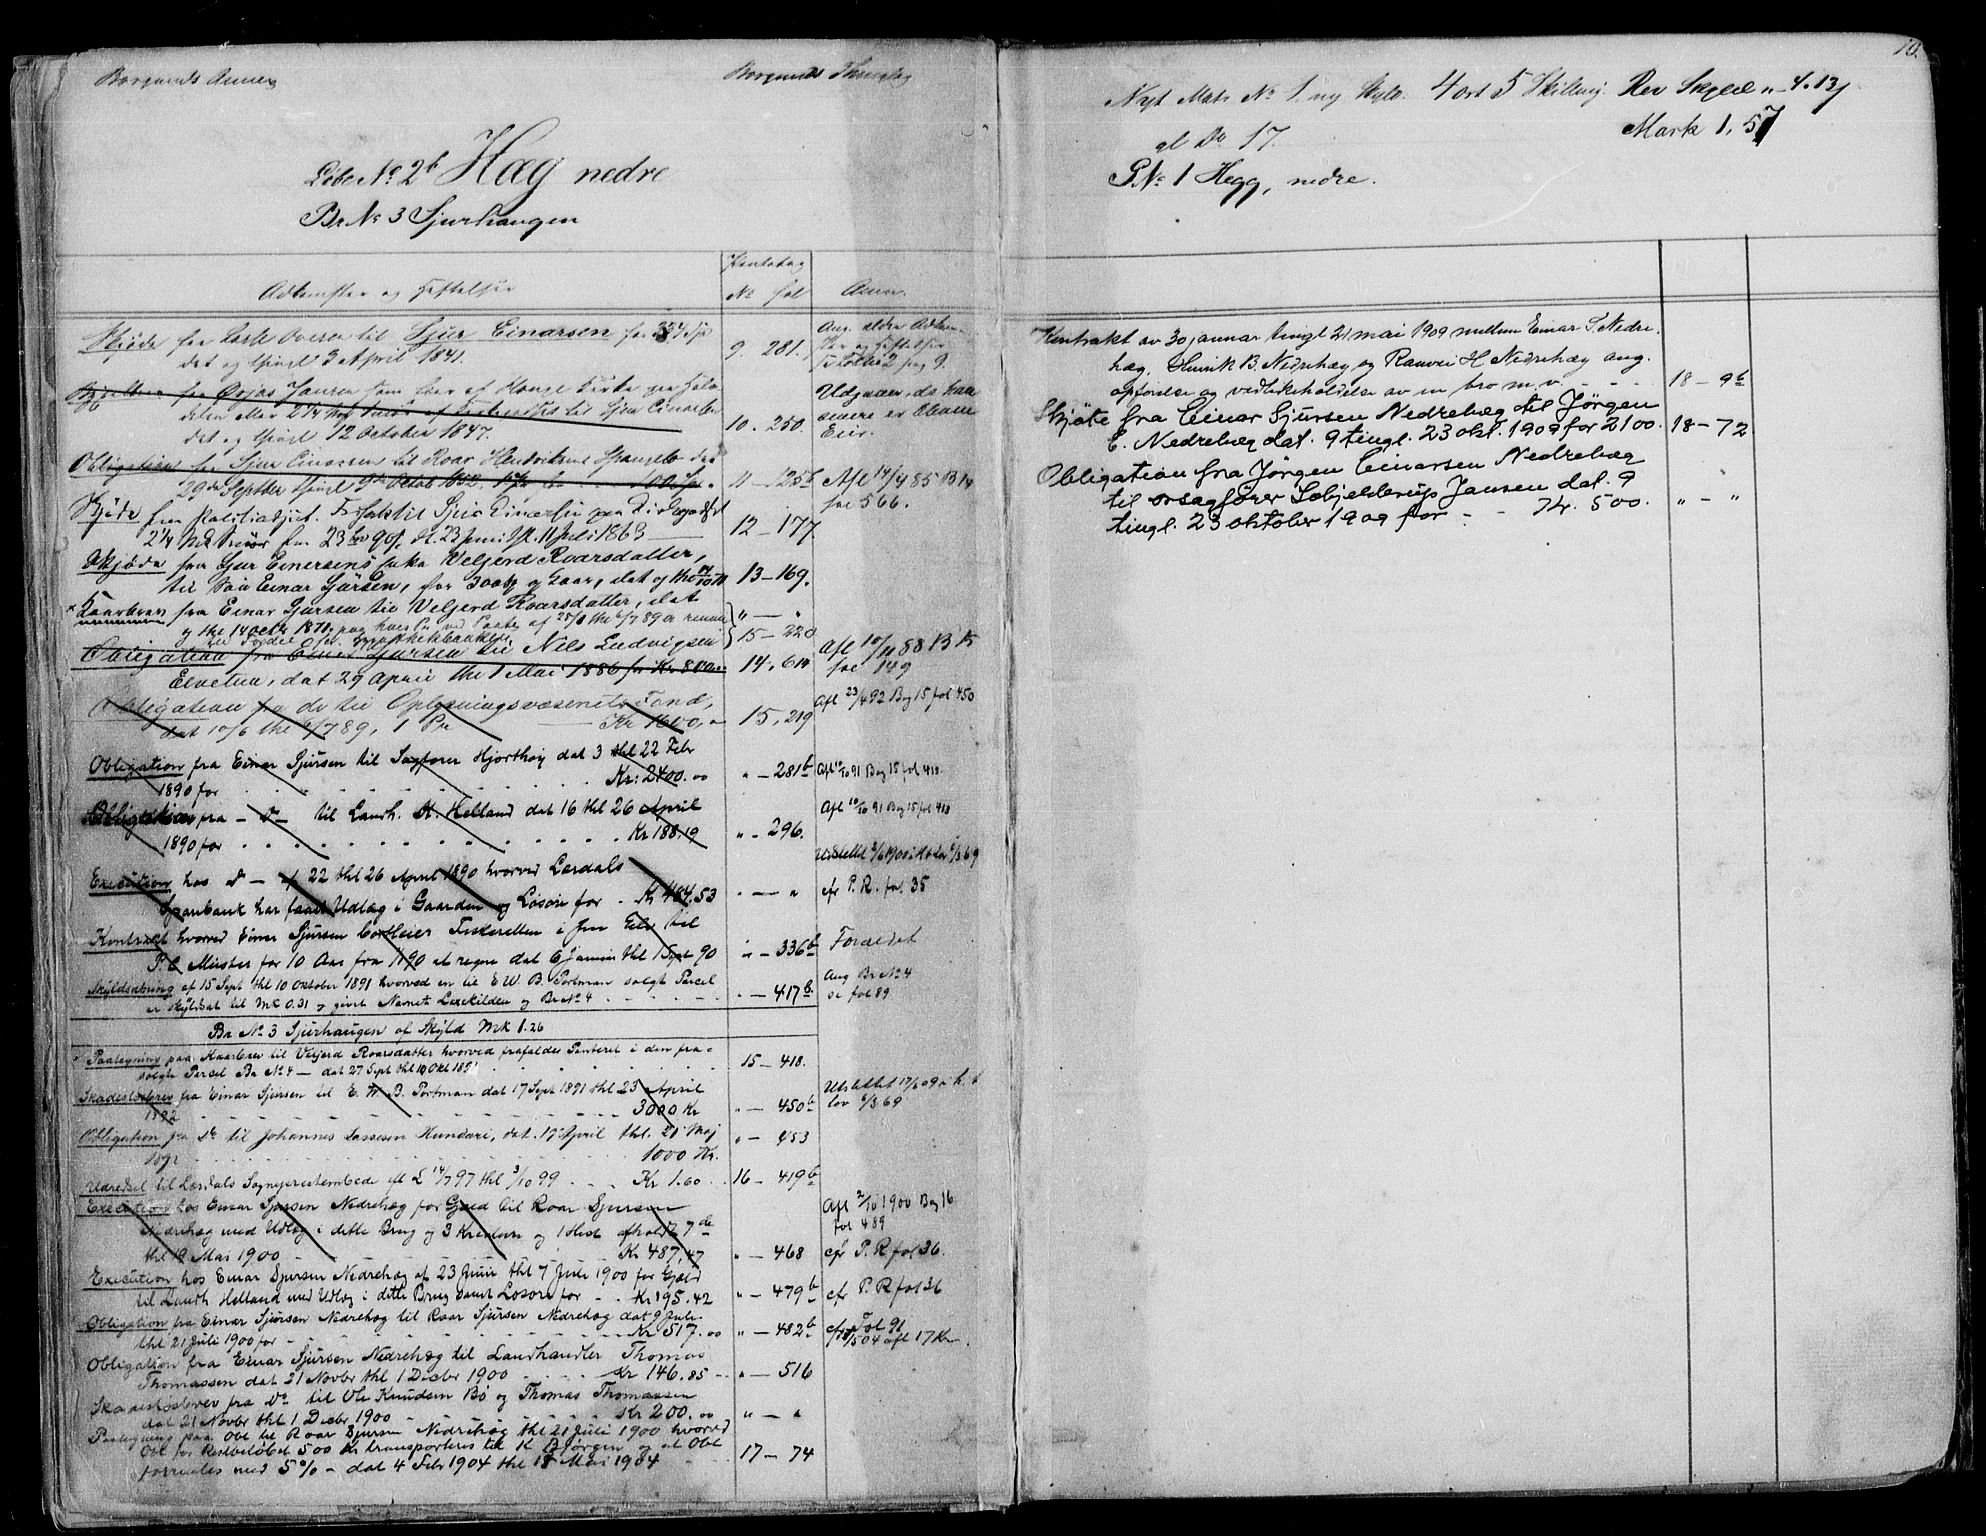 Borgunds Annex
Borgunds Thinglag
Löbe No 2b Hæg nedre
Br No 3 Sjurhaugen
Adkomster og Heftelser
Pantebog
No fol
Anm.
Skjöde fra Lasse Oversen til Sjur Einarsen for 334 Spd
dat og thingl 3 April 1841.
9. 281.
Ang. ældre Adkom-
ster og Heftelser
se Löbe No 2 pag 9.
dat og thingl 12 October 1847.
10. 250.
Udgaaer, da han
senere er bleven
Eier.
Obligation fra Sjur Einarsen til Roar Hendriksen Spangelo dat
29de Septbr thingl
11 - 125b
Afl 14/4 85 B 14
fol 566.
Skjöde fra Politiadjut. til Sjur Einarsen paa
2 1/4 Md Smör dt. 23 Juni Thl. 11 Juli 1863
12 - 177
Skjöde fra Sjur Einersens Enke Veljerd Roarsdatter,
til Sön Einar Sjursen, for 300 Sp og Kaar, dat og thl 14/10 70
13 - 169.
Kaarbrev fra Einar Sjursen til Veljerd Roarsdatter, dat
og thl 14 Octbr 1870.
" - "
15 - 220
Obligation fra Einar Sjursen til Nils Ludvigsen
Elvetun, dat 29 April thl 1 Mai 1886 for Kr 800.
14. 614
Afl 10/11 88 B 15
fol 149
Obligation fra do til Oplysningsvæsenets Fond,
dat 10/6 thl 6/7 89, 1 Pr Kr 1600,
15, 219
Afl 23/4 92 Bog 15 fol 450
Obligation fra Einar Sjursen til Sagförer Hjorthöy dat 3 thl 22 Febr
1890 for Kr: 2400.00
" - 281b
Afl 10/10 91 Bog 15 fol 410.
Obligation fra - Do - til Landh. H. Helland dat 16 thl 26 April
1890 for Kr 188.19
" - 296.
Afl 10/10 91 Bog 15 fol 410
Execution hos Do - af 22 thl 26 April 1890 hvorved Lærdals
Sparebank har faaet Udlæg i Gaarden og Lösöre for - Kr 484.53
" - "
cfr P. R. fol 35
Kontrakt hvorved Einar Sjursen bortleier Fiskeretten i fra Elv til
P. C. Munster for 10 Aar fra 1890 at regne dat 6 Januar thl 1 Sept 90
" - 336b
Forældet
Skyldsætning af 15 Sept thl 10 Oktober 1891 hvorved en til E. W. B. Portman solgt Parcel
er skyldsat til Mk 0.31 og givet Navnet Laxekilden og Br No 4
" - 417b
Ang Br No 4
se fol 89
Br No 3 Sjurhaugen af Skyld Mk 1.26
Paategning paa Kaarbrev til Veljerd Roarsdatter hvorved frafaldes Panteret i den fra-
solgte Parcel Br No 4 - dat 27 Sept thl 10 Okt 1891
15 - 418.
Skadeslösbrev fra Einar Sjursen til E. W. B. Portman dat 17 Sept 1891 thl 23 April
1892 3000 Kr
" - 450b
Udslettet 17/6 09 i h. t.
lov 6/3 69
Obligation fra Do til Johannes Lassesen Hundari, dat. 19 April thl. 21 Maj
1892 1000 Kr.
" - 453
Udredsel til Lærdals Sogneprestembede afl 14/7 97 thl 3/10 99 Kr 1.60
16 - 419b
Execution hos Einar Sjursen Nedrehæg for Gjæld til Roar Sjursen
Nedrehæg med Udlæg i dette Brug og 3 Kreature og 1 Hest afholdt 7de
thl 19 Mai 1900 - Kr 487,47
" - 468
Afl 2/10 1900 Bog 16
fol 489
cfr P. R fol 36.
Execution hos Einar Sjursen Nedrehæg af 23 Juni thl 7 Juli 1900 for Gjæld
til Landh Helland med Udlæg i dette Brug samt Lösöre for - Kr 195.42
" - 479b
cfr P. R fol 36
Obligation fra Einar Sjursen Nedrehæg til Roar Sjursen Nedrehæg dat 9 Juli
thl 21 Juli 1900 for - Kr 517.00
" - 482b
cfr Fol 91
Obligation fra Einar Sjursen Nedrehæg til Landhandler Thomas
Thomassen dat 21 Novbr thl 1 Decbr 1900 Kr 146.85
" - 516
Skadeslösbrev fra Do til Ole Knudsen Bö og Thomas Thomassen
dat 21 Novbr thl 1 Decbr 1900 Kr 200.00
" - "
Paategning paa Obl til Roar Sjursen Nedrehæg thl 21 Juli 1900 hvorved
Obl for Restbelöbet 500 Kr transporteres til K Björgen og at Obl
forrentes med 5 % - dat 4 Febr 1904 thl 18 Mai 1904
17 - 74
10.
Nyt Matr No 1. ny Skyld. 4 ort 5 Skilling. Rev Skyld " - 4. 13
Mark 1,57
gl Do 17.
G No 1 Hegg, nedre.
Kontrakt av 30 januar tingl 21 mai 1909 mellem Einar S. Nedre-
hæg, Henrik B. Nedrehæg og Ranvei H Nedrehæg ang.
opförelse og vedlikeholdelse av en bro m. v.
18 - 9b
Skjöte fra Einar Sjursen Nedrehæg til Jörgen
E. Nedrehæg dat. 9 tingl. 23 okt. 1909 for 2100.
18 - 72
Obligation fra Jörgen Einarsen Nedrehæg
til orsagförer Schjelderup Jansen dat. 9
tingl. 23 oktober 1909 for - - Kr. 500.
" - "